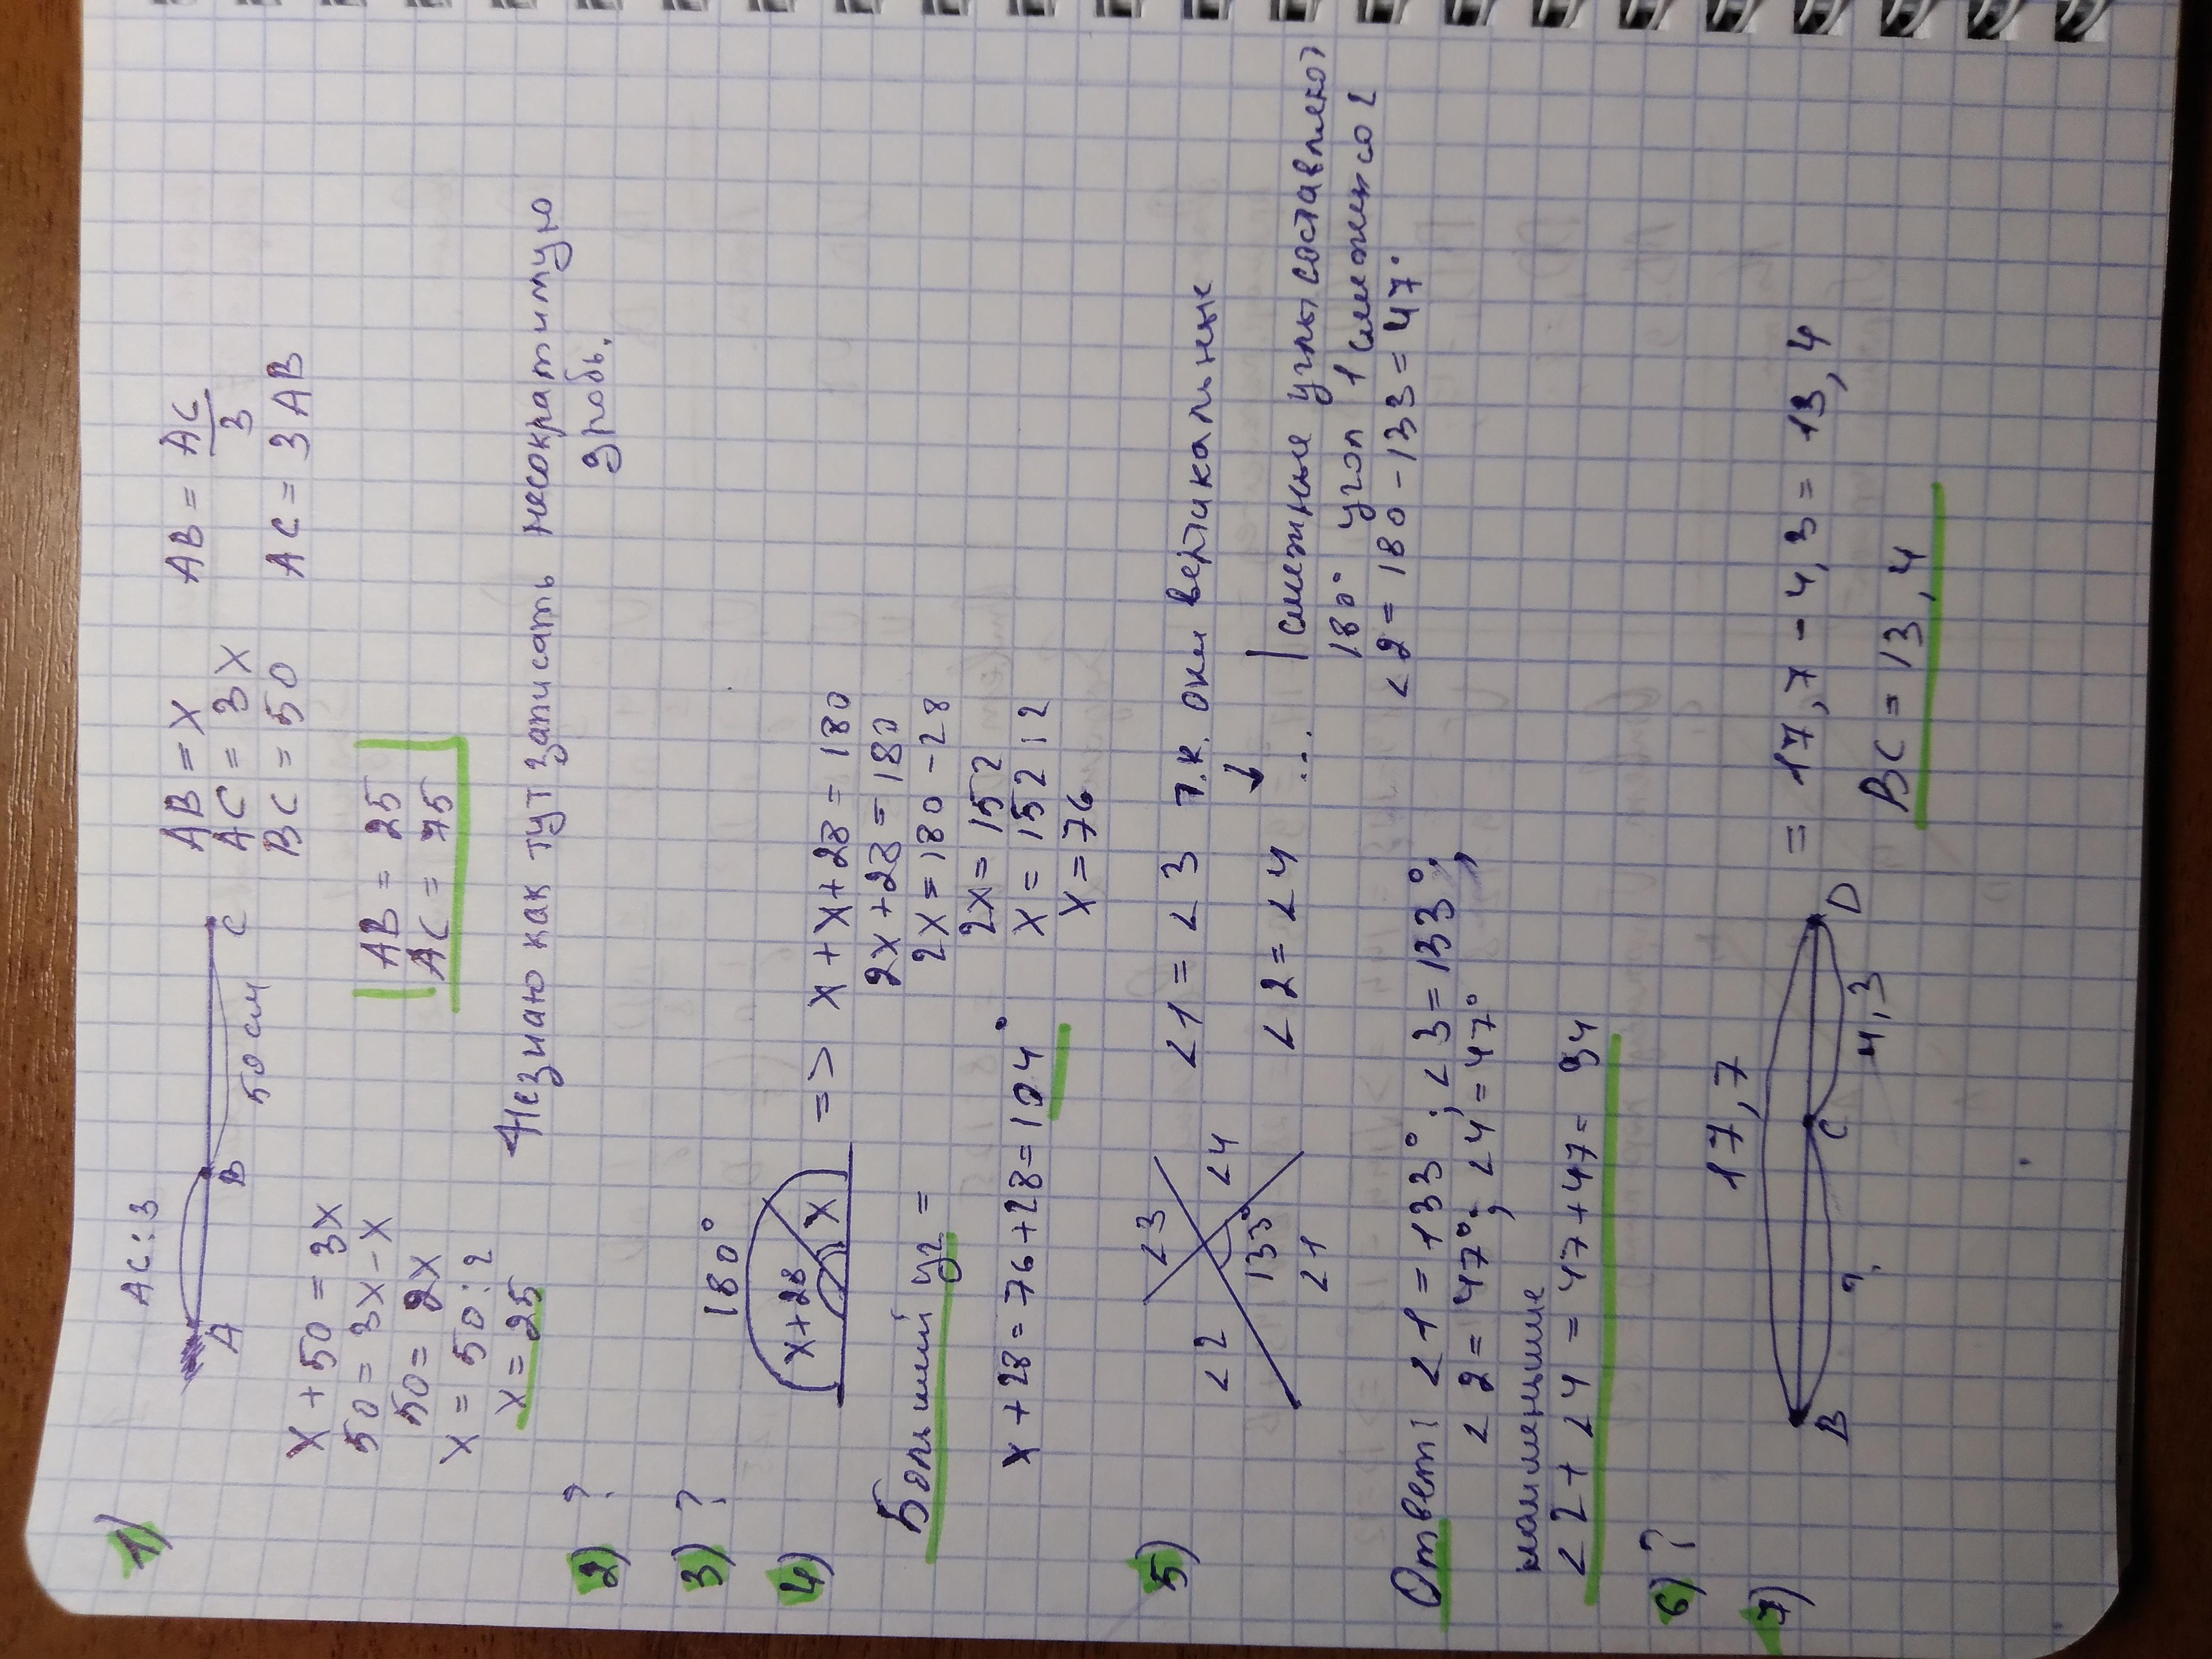 1)
AC:3
A B C
50 см
AB = X
AC = 3X
BC = 50
AB = AC/3
AC = 3 AB
X + 50 = 3X
50 = 3X - X
50 = 2X
X = 50 : 2
X = 25
AB = 25
AC = 75
Незнаю как тут записать несократимую
дробь.
2) ?
3) ?
4)
180°
X+28 X
=> X + X + 28 = 180
2X + 28 = 180
2X = 180 - 28
2X = 152
X = 152 : 2
X = 76
Больший уг =
X + 28 = 76 + 28 = 104°
5)
<3
<2 <4
133°
<1
<1 = <3 т.к. они вертикальные
<2 = <4 ...
Смежные углы составляют
180° угол 1 смежен со 2
<2 = 180 - 133 = 47°
Ответ: <1 = 133°; <3 = 133°;
<2 = 47°; <4 = 47°
наименьшие
<2 + <4 = 47 + 47 = 94
6) ?
7)
17,7
B C D
? 4,3
= 17,7 - 4,3 = 13,4
BC = 13,4